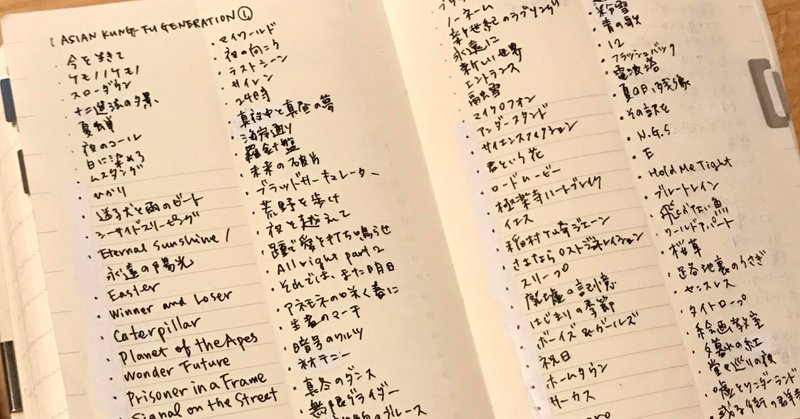 [ASIAN KUNG-FU GENERATION ①]
・今を生きて
・ケモノノケモノ
・スローダウン
・十二進法の夕景
・夏蝉
・夜のコール
・日に染めろ
・ムスタング
・ひかり
・迷子犬と雨のビート
・シーサイドスリーピング
・Eternal Sunshine /
永遠の陽光
・Easter
・Winner and Loser
・Caterpillar
・Planet of the Apes
・Wonder Future
・Prisoner in a Frame
・Signal on the Street
・マイワールド
・夜の向こう
・ラストシーン
・サイレン
・24時
・真夜中と真昼の夢
・海岸通り
・羅針盤
・未来の破片
・ブラッドサーキュレーター
・荒野を歩け
・夜を越えて
・踵で愛を打ち鳴らせ
・All right part 2
・それでは、また明日
・アネモネの咲く春に
・生者のマーチ
・暗号のワルツ
・ネオテニー
・真冬のダンス
・無限グライダー
ノーネーム
・新世紀のラブソング
・永遠に
・新しい世界
・エントランス
・融雪
・マイクロフォン
・アンダースタンド
・サイエンスフィクション
・君という花
・ロードムービー
・極楽寺ハートブレイク
・イエス
・稲村ヶ崎ジェーン
・さよならロストジェネレイション
・スリープ
・廃墟の記憶
・はじまりの季節
・ボーイズ&ガールズ
・祝日
・ホームタウン
・サーカス
・粉雪
・青の歌
・12
・フラッシュバック
・電波塔
・夏の日、残像
・その訳を
・N.G.S
・E
・Hold Me Tight
・ブルートレイン
・飛べない魚
・ワールドアパート
・桜草
・路地裏のうさぎ
・センスレス
・タイトロープ
・絵画教室
・夕暮れの紅
・嘘とワンダーランド